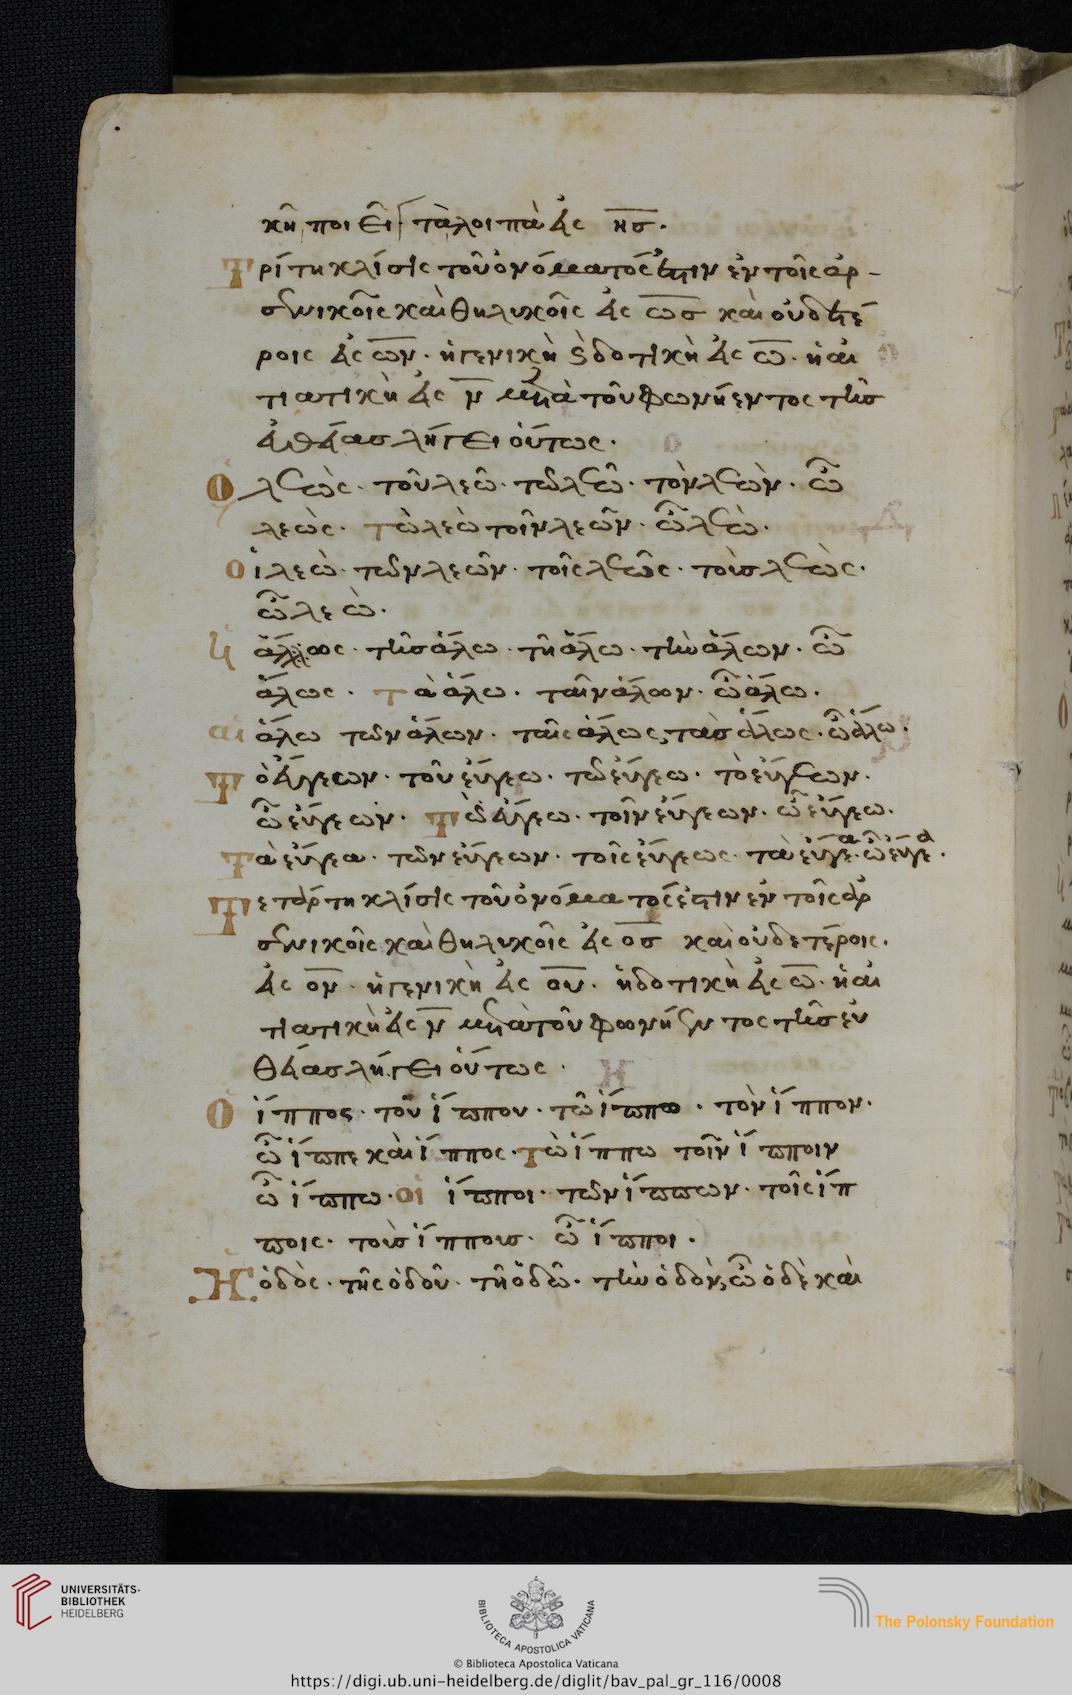 κῆ ποιεῖ τὰ λοιπὰ εἰς ης.
Τρίτη κλίσις τοῦ ὀνόματός ἐστιν ἐν τοῖς ἀρ-
σενικοῖς καὶ θηλυκοῖς εἰς ως καὶ οὐδετέ
ροις εἰς ων. ἡ γενικὴ ϗ δοτικὴ εἰς ω. ἡ αἰ
τιατικὴ εἰς ν μετὰ τοῦ φωνήεντος τῆς
εὐθείας λήγει οὕτως.
Ὁ λεὼς. τοῦ λεῶ. τῶ λεῶ. τὸν λεὼν. ὦ
λεὼς. τὼ λεὼ τοῖν λεῶν. ὦ λεὼ.
οἱ λεὼ. τῶν λεῶν. τοῖς λεῶς. τοὺς λεὼς.
ὦ λεὼ.
ἡ ἅλως. τῆς ἅλω. τῆ ἅλω. τὴν ἅλων. ὦ
ἅλως. τὰ ἅλω. ταῖν ἅλων. ὦ ἅλω.
αἱ ἅλω τῶν ἅλων. ταῖς ἅλως, τὰς ἅλως. ὦ ἅλω.
Τὸ εὔγεων. τοῦ εὔγεω. τῶ εὔγεω. τὸ εὔγεων.
ὦ εὔγεων. τὼ εὔγεω. τοῖν εὔγεων. ὦ εὔγεω.
Τὰ εὔγεα. τῶν εὔγεων. τοῖς εὔγεως. τὰ εὔγεα. ὦ εὔγεα.
Τετάρτη κλίσις τοῦ ὀνόματός ἐστιν ἐν τοῖς ἀρ
σενικοῖς καὶ θηλυκοῖς εἰς ος καὶ οὐδετέροις.
εἰς ον. ἡ γενικὴ εἰς ου. ἡ δοτικὴ εἰς ω. ἡ αἰ
τιατικὴ εἰς ν μετὰ τοῦ φωνήεντος τῆς εὐ
θείας λήγει οὕτως.
Ὁ ἵππος. τοῦ ἵππου. τῶ ἵππω. τὸν ἵππον.
ὦ ἵππε καὶ ἵππος. τὼ ἵππω τοῖν ἵπποιν
ὦ ἵππω. οἱ ἵπποι. τῶν ἵππων. τοῖς ἵπ
ποις. τοὺς ἵππους. ὦ ἵπποι.
Ἡ ὁδὸς. τῆς ὁδοῦ. τῆ ὁδῶ. τὴν ὁδὸν, ὦ ὁδὲ καὶ
UNIVERSITÄTS-
BIBLIOTHEK
HEIDELBERG
BIBLIOTECA APOSTOLICA VATICANA
The Polonsky Foundation
© Biblioteca Apostolica Vaticana
https://digi.ub.uni-heidelberg.de/diglit/bav_pal_gr_116/0008